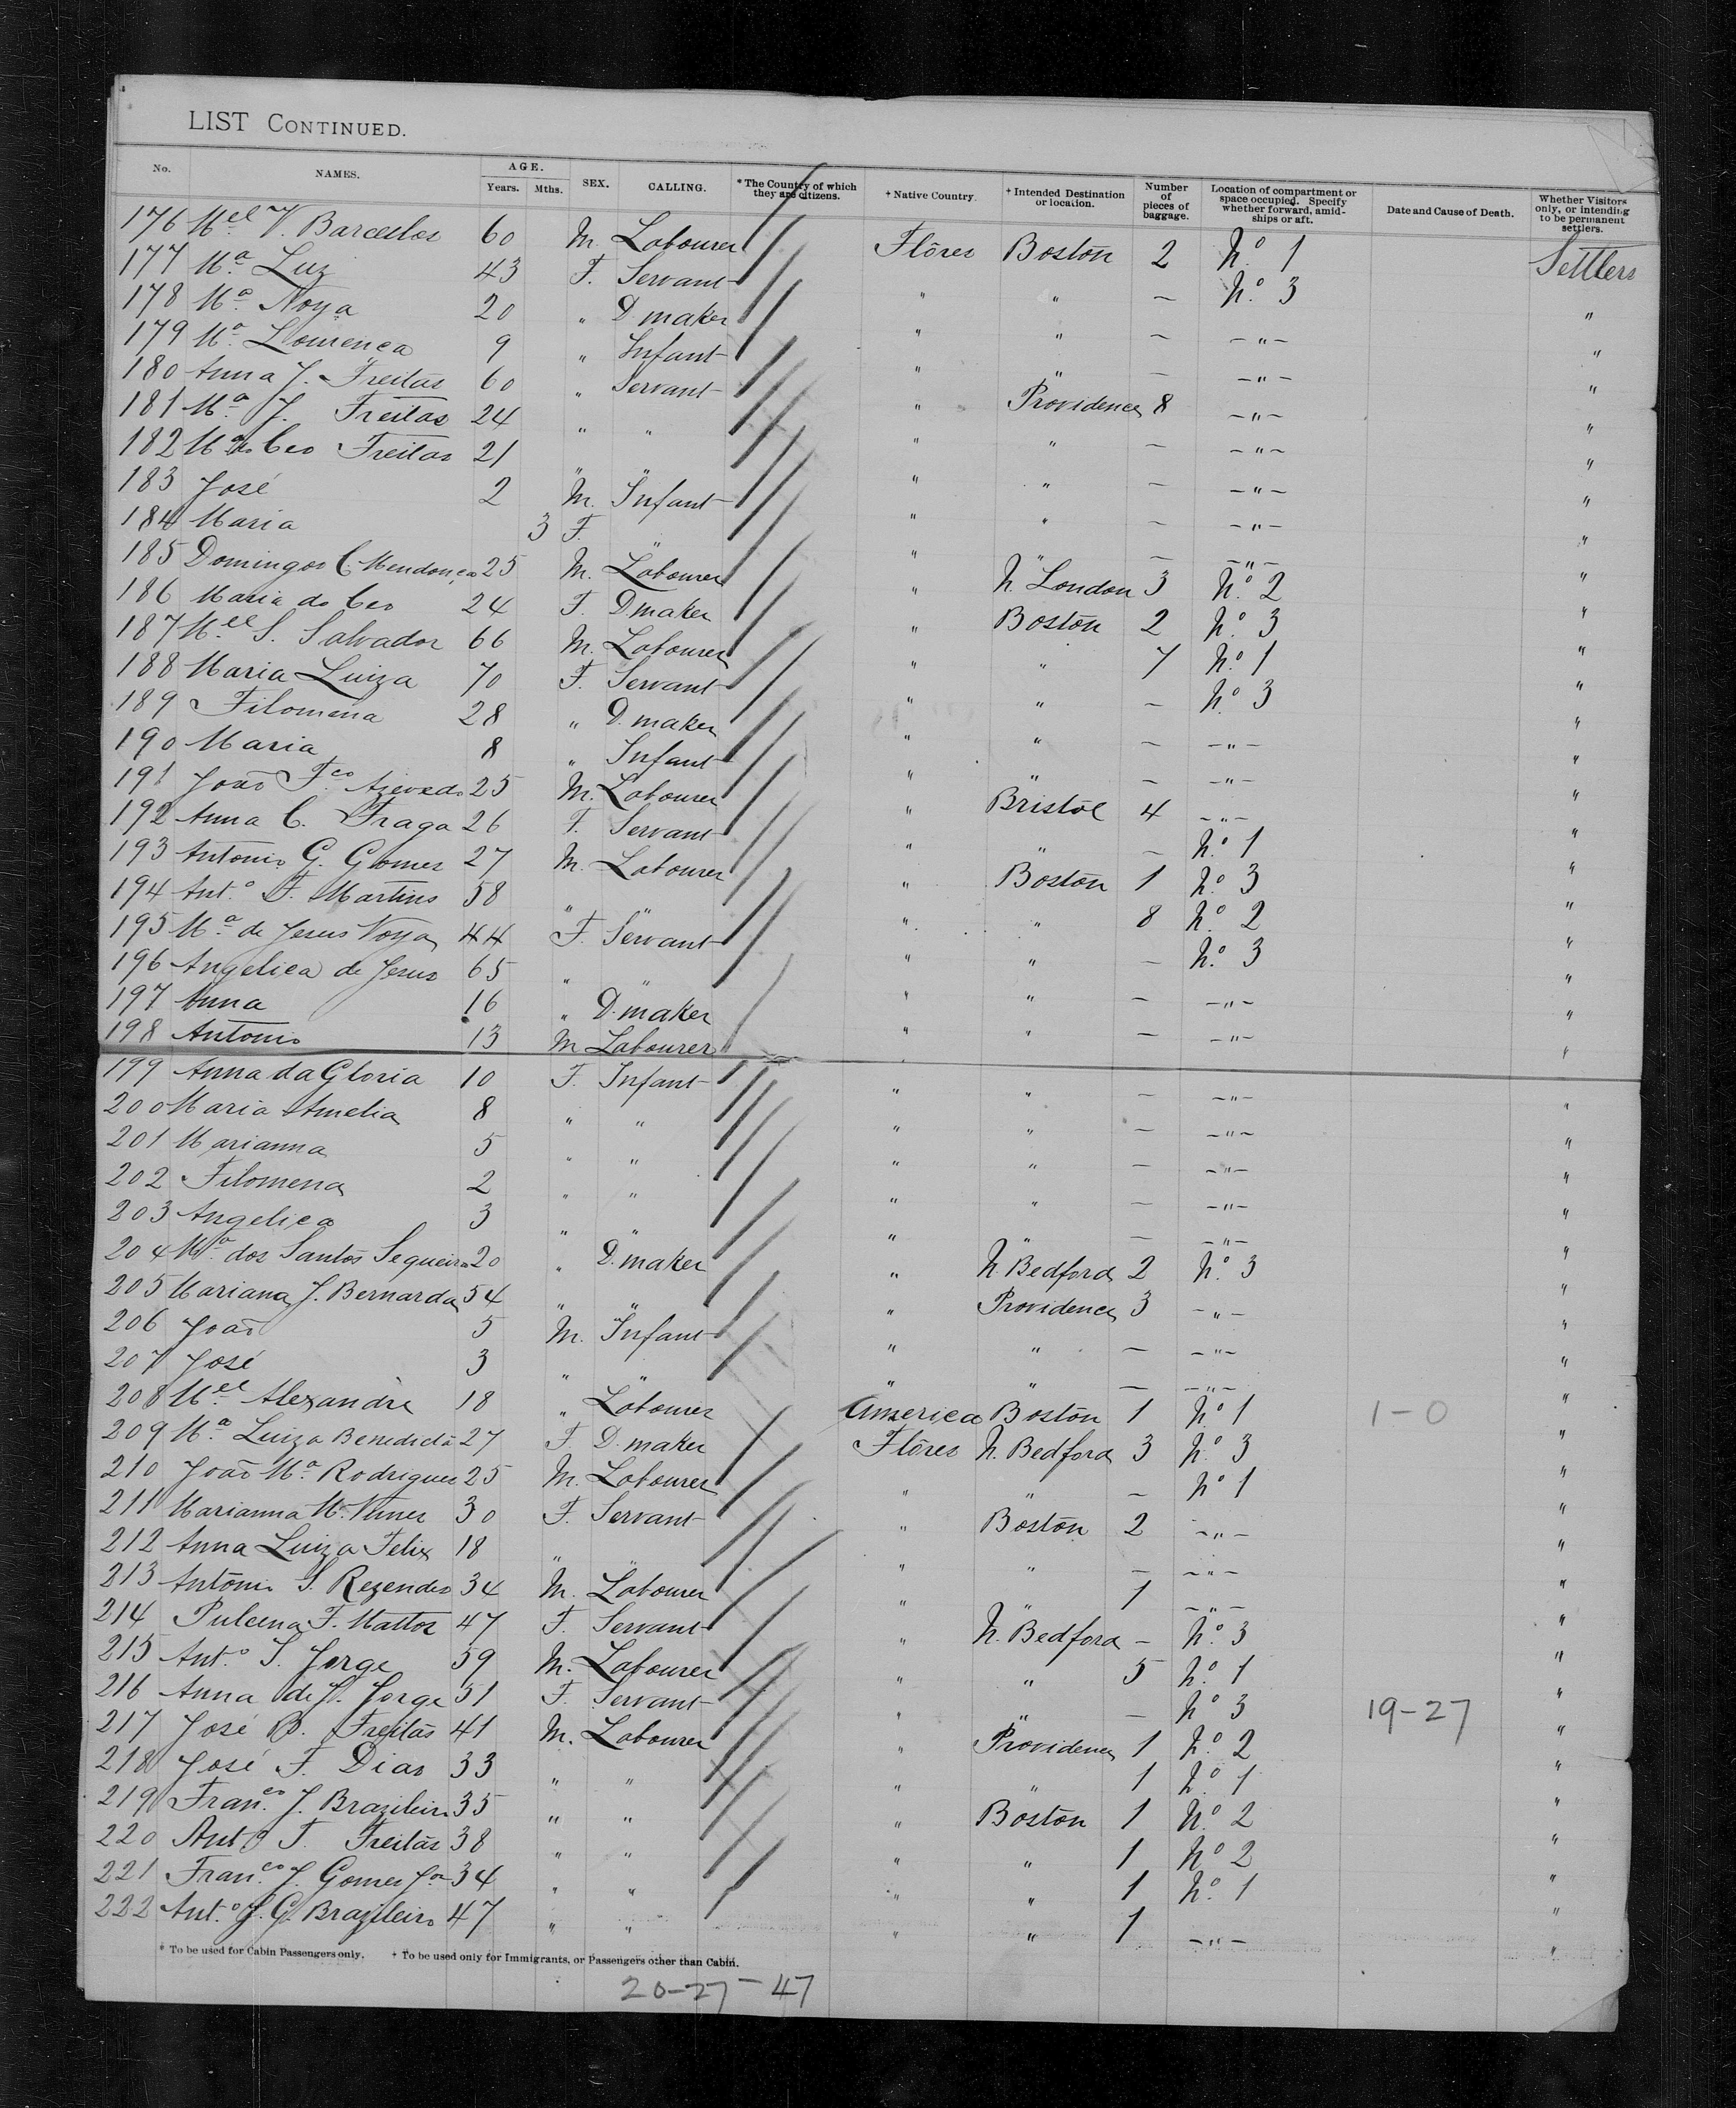 LIST CONTINUED.
No. NAMES. AGE. Years. Mths. SEX. CALLING. *The Country of which they are citizens. +Native Country. +Intended Destination or location. Number of pieces of baggage. Location of compartment or space occupied. Specify whether forward, amidships or aft. Date and Cause of Death. Whether Visitors only, or intending to be permanent settlers.
176 Mel V. Barcellos 60 M. Labourer Flôres Boston 2 No 1 Settlers
177 Ma Luz 43 F. Servant " " — No 3 "
178 Ma Noya 20 " D. maker " " — —"— "
179 Ma Lourença 9 " Infant " " — —"— "
180 Anna J. Freitas 60 " Servant " Providence 8 —"— "
181 Ma J. Freitas 24 " " " " — —"— "
182 Ma do Ceo Freitas 21 " " " " — —"— "
183 José 2 M. Infant " " — —"— "
184 Maria 3 F. " " " — —"— "
185 Domingos C. Mendonça 25 M. Labourer " N. London 3 No 2 "
186 Maria do Ceo 24 F. D. maker " Boston 2 No 3 "
187 Mel S. Salvador 66 M. Labourer " " 7 No 1 "
188 Maria Luiza 70 F. Servant " " — No 3 "
189 Filomena 28 " D. maker " " — —"— "
190 Maria 8 " Infant " " — —"— "
191 João Fco Azevedo 25 M. Labourer " Bristol 4 —"— "
192 Anna C. Fraga 26 F. Servant " " — No 1 "
193 Antonio G. Gomes 27 M. Labourer " Boston 1 No 3 "
194 Anto F. Martins 58 " " " " 8 No 2 "
195 Ma de Jesus Noya 44 F. Servant " " — No 3 "
196 Angelica de Jesus 65 " " " " — —"— "
197 Anna 16 " D. maker " " — —"— "
198 Antonio 13 M Labourer " "
199 Anna da Gloria 10 F. Infant " " — —"— "
200 Maria Amelia 8 " " " " — —"— "
201 Marianna 5 " " " " — —"— "
202 Filomena 2 " " " " — —"— "
203 Angelica 3 " " " " — —"— "
204 Ma dos Santos Sequeira 20 " D. maker " N. Bedford 2 No 3 "
205 Mariana J. Bernarda 54 " " " Providence 3 —"— "
206 João 5 M. Infant " " — —"— "
207 José 3 " " " " — —"— "
208 Mel Alexandre 18 " Labourer America Boston 1 No 1 1-0 "
209 Ma Luiza Benedicta 27 F. D. maker Flôres N. Bedford 3 No 3 "
210 João Ma Rodrigues 25 M. Labourer " " — No 1 "
211 Marianna M. Nunes 30 F. Servant " Boston 2 —"— "
212 Anna Luiza Felix 18 " " " " — —"— "
213 Antonio S. Rezendes 34 M. Labourer " " 1 —"— "
214 F. Mattos 47 F. Servant " N. Bedford — No 3 "
215 Anto S. Jorge 59 M. Labourer " " 5 No 1 "
216 Anna de J. Jorge 51 F. Servant " " — No 3 19-27 "
217 José B. Freitas 41 M. Labourer " Providence 1 No 2 "
218 José F. Dias 33 " " " " 1 No 1 "
219 Franco J. Brazileiro 35 " " " Boston 1 No 2 "
220 Anto T. Freitas 38 " " " " 1 No 2 "
221 Franco J. Gomes Jor 34 " " " " 1 No 1 "
222 Anto J. G. Brazileiro 47 " " " " 1 —"— "
* To be used for Cabin Passengers only. + To be used only for Immigrants, or Passengers other than Cabin.
20-27-47